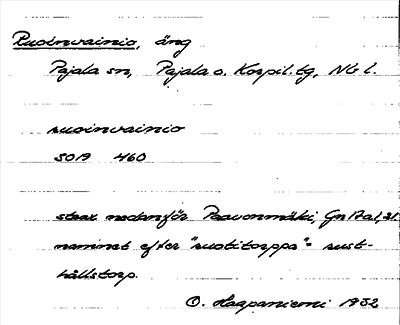 Ruoinvainio, äng
Pajala sn, Pajala o. Korpil. tg, Nb l.
ruoinvainio
5019 460
strax nedanför Paavonmäki, Gn 17a1,31
namnet efter "ruotitorppa" = rust-
hållstorp.
O. Haapaniemi 1932